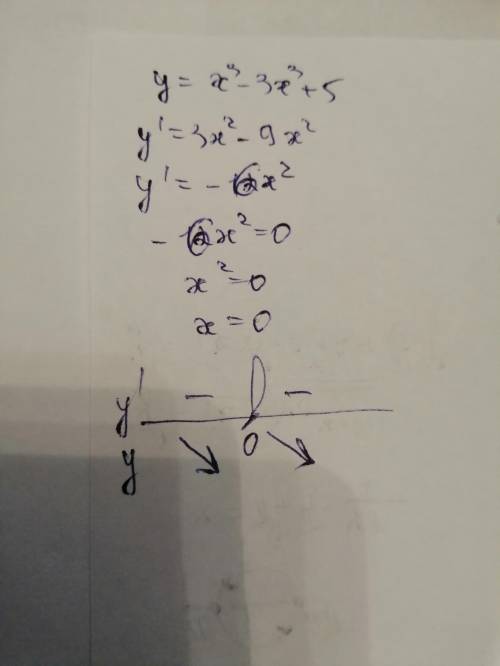 y = x³ - 3x³ + 5
y' = 3x² - 9x²
y' = - 6x²
- 6x² = 0
x² = 0
x = 0
y' - -
0
y